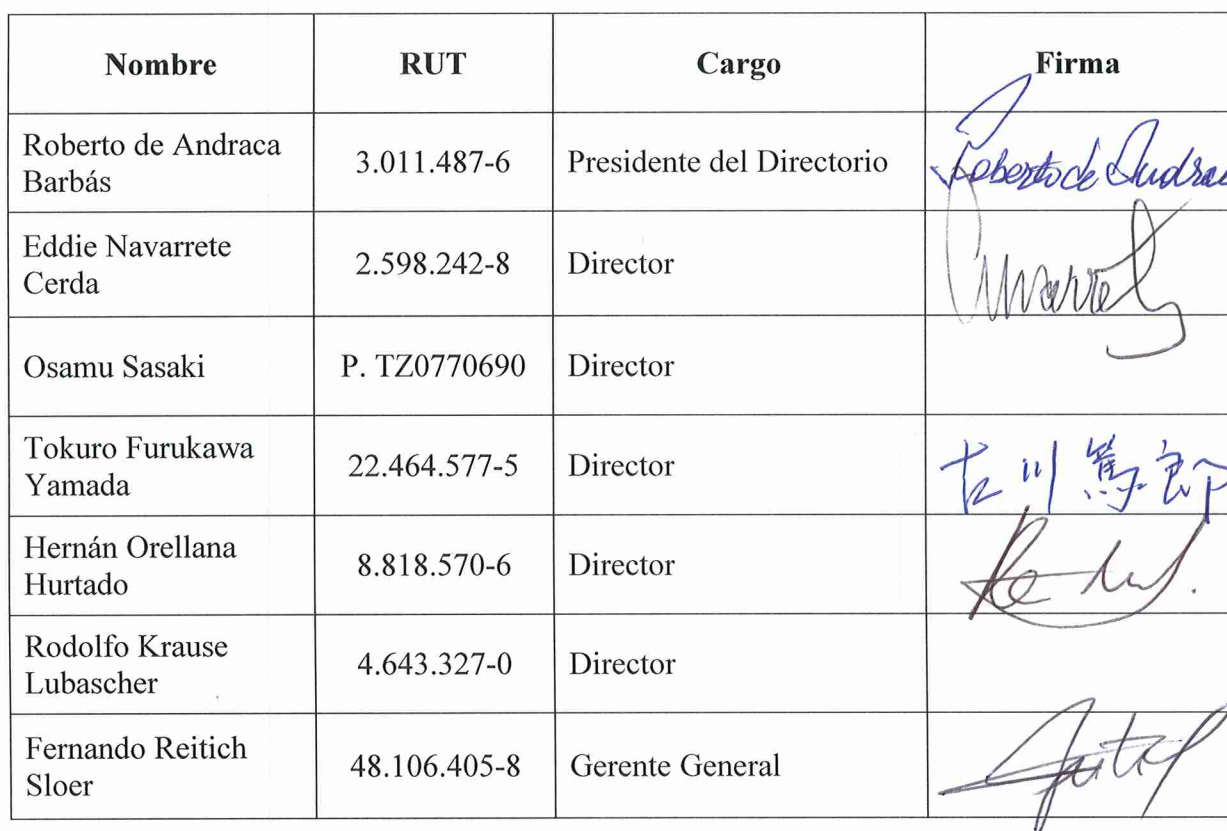 Nombre RUT Cargo Firma
Roberto de Andraca
Barbás
3.011.487-6 Presidente del Directorio Roberto de Andraca
Eddie Navarrete
Cerda
2.598.242-8 Director
Osamu Sasaki P. TZ0770690 Director
Tokuro Furukawa
Yamada
22.464.577-5 Director 古川篤郎
Hernán Orellana
Hurtado
8.818.570-6 Director
Rodolfo Krause
Lubascher
4.643.327-0 Director
Fernando Reitich
Sloer
48.106.405-8 Gerente General